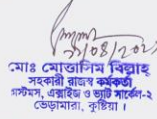 মোঃ মোত্তাসিম বিল্লাহ
সহকারী রাজস্ব কর্মকর্তা
কাস্টমস, এক্সাইজ ও ভ্যাট সার্কেল-২
ভেড়ামারা, কুষ্টিয়া ।